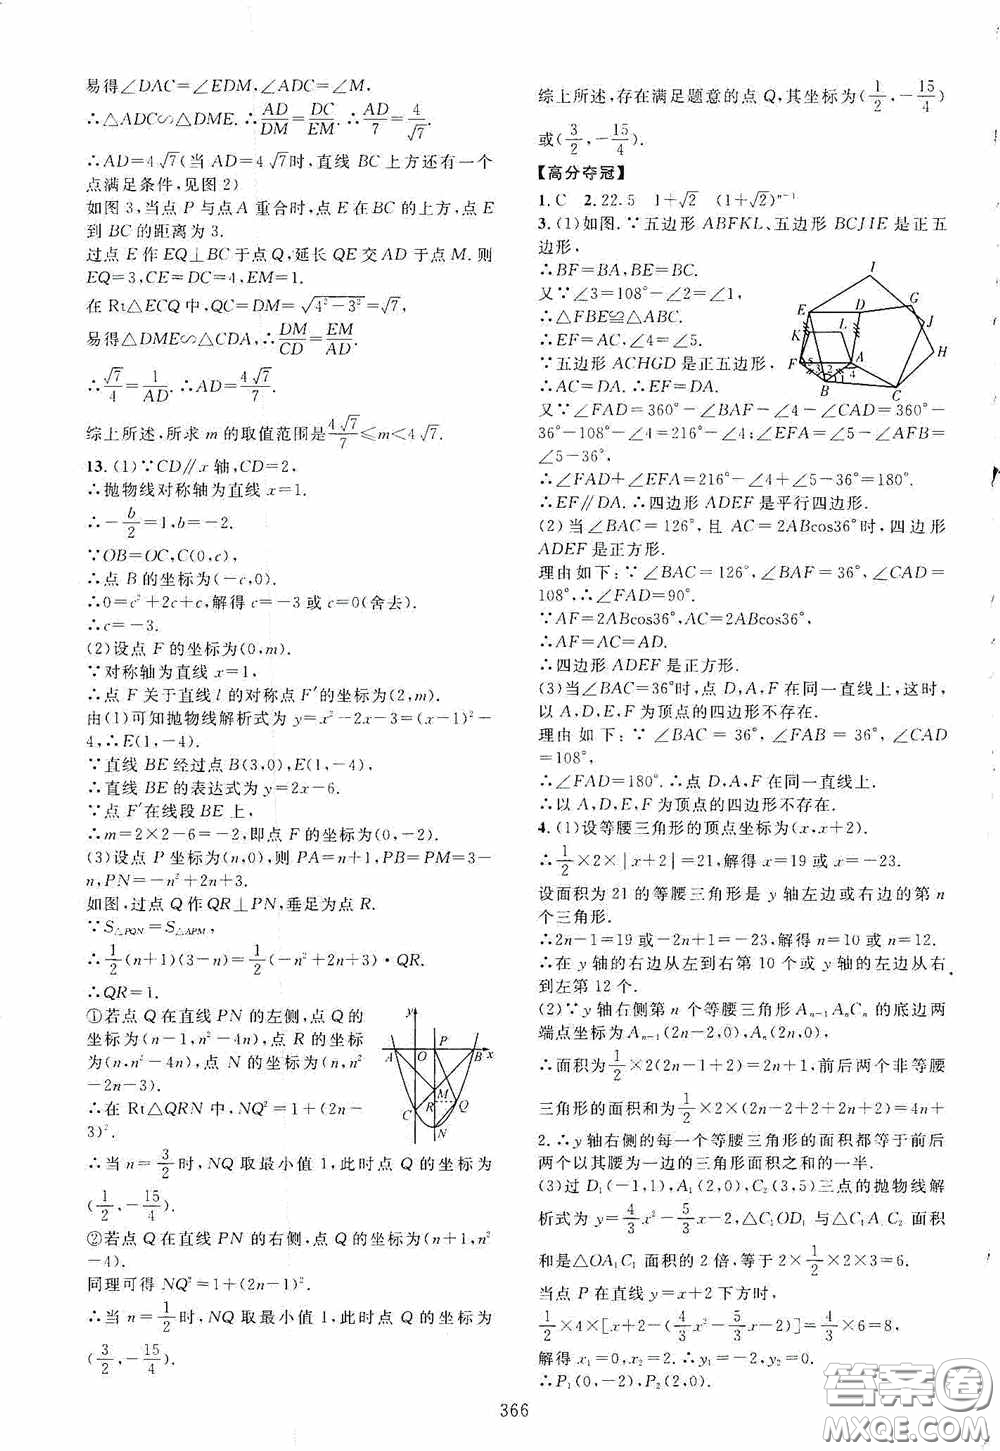 易得∠DAC=∠EDM,∠ADC=∠M,
∴△ADC∽△DME.∴AD/DM=DC/EM.∴AD/7=4/√7.
∴AD=4√7(当AD=4√7时,直线BC上方还有一个
点满足条件,见图2)
如图3,当点P与点A重合时,点E在BC的上方,点E
到BC的距离为3.
过点E作EQ⊥BC于点Q,延长QE交AD于点M.则
EQ=3,CE=DC=4,EM=1.
在Rt△ECQ中,QC=DM=√(4²-3²)=√7,
易得△DME∽△CDA,∴DM/CD=EM/AD.
∴√7/4=1/AD.∴AD=4√7/7.
综上所述,所求m的取值范围是4√7/7≤m<4√7.
13.(1)∵CD∥x轴,CD=2,
∴抛物线对称轴为直线x=1.
∴-b/2=1,b=-2.
∵OB=OC,C(0,c),
∴点B的坐标为(-c,0).
∴0=c²+2c+c,解得c=-3或c=0(舍去).
∴c=-3.
(2)设点F的坐标为(0,m).
∵对称轴为直线x=1,
∴点F关于直线l的对称点F′的坐标为(2,m).
由(1)可知抛物线解析式为y=x²-2x-3=(x-1)²-
4,∴E(1,-4).
∵直线BE经过点B(3,0),E(1,-4).
∴直线BE的表达式为y=2x-6.
∵点F′在线段BE上,
∴m=2×2-6=-2,即点F的坐标为(0,-2).
(3)设点P坐标为(n,0),则PA=n+1,PB=PM=3-
n,PN=-n²+2n+3.
如图,过点Q作QR⊥PN,垂足为点R.
∵S△PQN=S△APM,
∴1/2(n+1)(3-n)=1/2(-n²+2n+3)·QR.
∴QR=1.
①若点Q在直线PN的左侧,点Q的
坐标为(n-1,n²-4n),点R的坐标
为(n,n²-4n),点N的坐标为(n,n²
-2n-3).
∴在Rt△QRN中,NQ²=1+(2n-
3)².
∴当n=3/2时,NQ取最小值1,此时点Q的坐标为
(1/2,-15/4).
②若点Q在直线PN的右侧,点Q的坐标为(n+1,n²
-4).
同理可得NQ²=1+(2n-1)².
∴当n=1/2时,NQ取最小值1,此时点Q的坐标为
(3/2,-15/4).
y
A O P B x
M
C R Q
N
综上所述,存在满足题意的点Q,其坐标为(1/2,-15/4)
或(3/2,-15/4).
【高分夺冠】
1.C 2.22.5 1+√2 (1+√2)ⁿ⁻¹
3.(1)如图.∵五边形ABFKL、五边形BCJIE是正五
边形,
∴BF=BA,BE=BC.
又∵∠3=108°-∠2=∠1,
∴△FBE≌△ABC.
∴EF=AC,∠4=∠5.
∵五边形ACHGD是正五边形,
∴AC=DA.∴EF=DA.
又∵∠FAD=360°-∠BAF-∠4-∠CAD=360°-
36°-108°-∠4=216°-∠4;∠EFA=∠5-∠AFB=
∠5-36°,
∴∠FAD+∠EFA=216°-∠4+∠5-36°=180°.
∴EF∥DA.∴四边形ADEF是平行四边形.
(2)当∠BAC=126°,且AC=2ABcos36°时,四边形
ADEF是正方形.
理由如下:∵∠BAC=126°,∠BAF=36°,∠CAD=
108°,∴∠FAD=90°.
∵AF=2ABcos36°,AC=2ABcos36°,
∴AF=AC=AD.
∴四边形ADEF是正方形.
(3)当∠BAC=36°时,点D,A,F在同一直线上,这时,
以A,D,E,F为顶点的四边形不存在.
理由如下:∵∠BAC=36°,∠BAF=36°,∠CAD=
108°,
∴∠FAD=180°.∴点D,A,F在同一直线上.
∴以A,D,E,F为顶点的四边形不存在.
4.(1)设等腰三角形的顶点坐标为(x,x+2).
∴1/2×2×|x+2|=21,解得x=19或x=-23.
设面积为21的等腰三角形是y轴左边或右边的第n
个三角形.
∴2n-1=19或-2n+1=-23,解得n=10或n=12.
∴在y轴的右边从左到右第10个或y轴的左边从右
到左第12个.
(2)∵y轴右侧第n个等腰三角形Aₙ₋₁AₙCₙ的底边两
端点坐标为Aₙ₋₁(2n-2,0),Aₙ(2n,0),
∴面积为1/2×2×(2n-1+2)=2n+1,前后两个非等腰
三角形的面积和为1/2×2×(2n-2+2+2n+2)=4n+
2.∴y轴右侧的每一个等腰三角形的面积都等于前后
两个以其腰为一边的三角形面积之和的一半.
(3)过D₁(-1,1),A₁(2,0),C₂(3,5)三点的抛物线解
析式为y=4/3x²-5/3x-2,△C₁OD₁与△C₁A₁C₂面积
和是△OA₁C₁面积的2倍,等于2×1/2×2×3=6.
当点P在直线y=x+2下方时,
1/2×4×[x+2-(4/3x²-5/3x-2)]=4/3×6=8,
解得x₁=0,x₂=2.∴y₁=-2,y₂=0.
∴P₁(0,-2),P₂(2,0).
I
E D G
K L J
H
F A
5 3 2 1 4
B C
366
答案圈
MXQE.COM